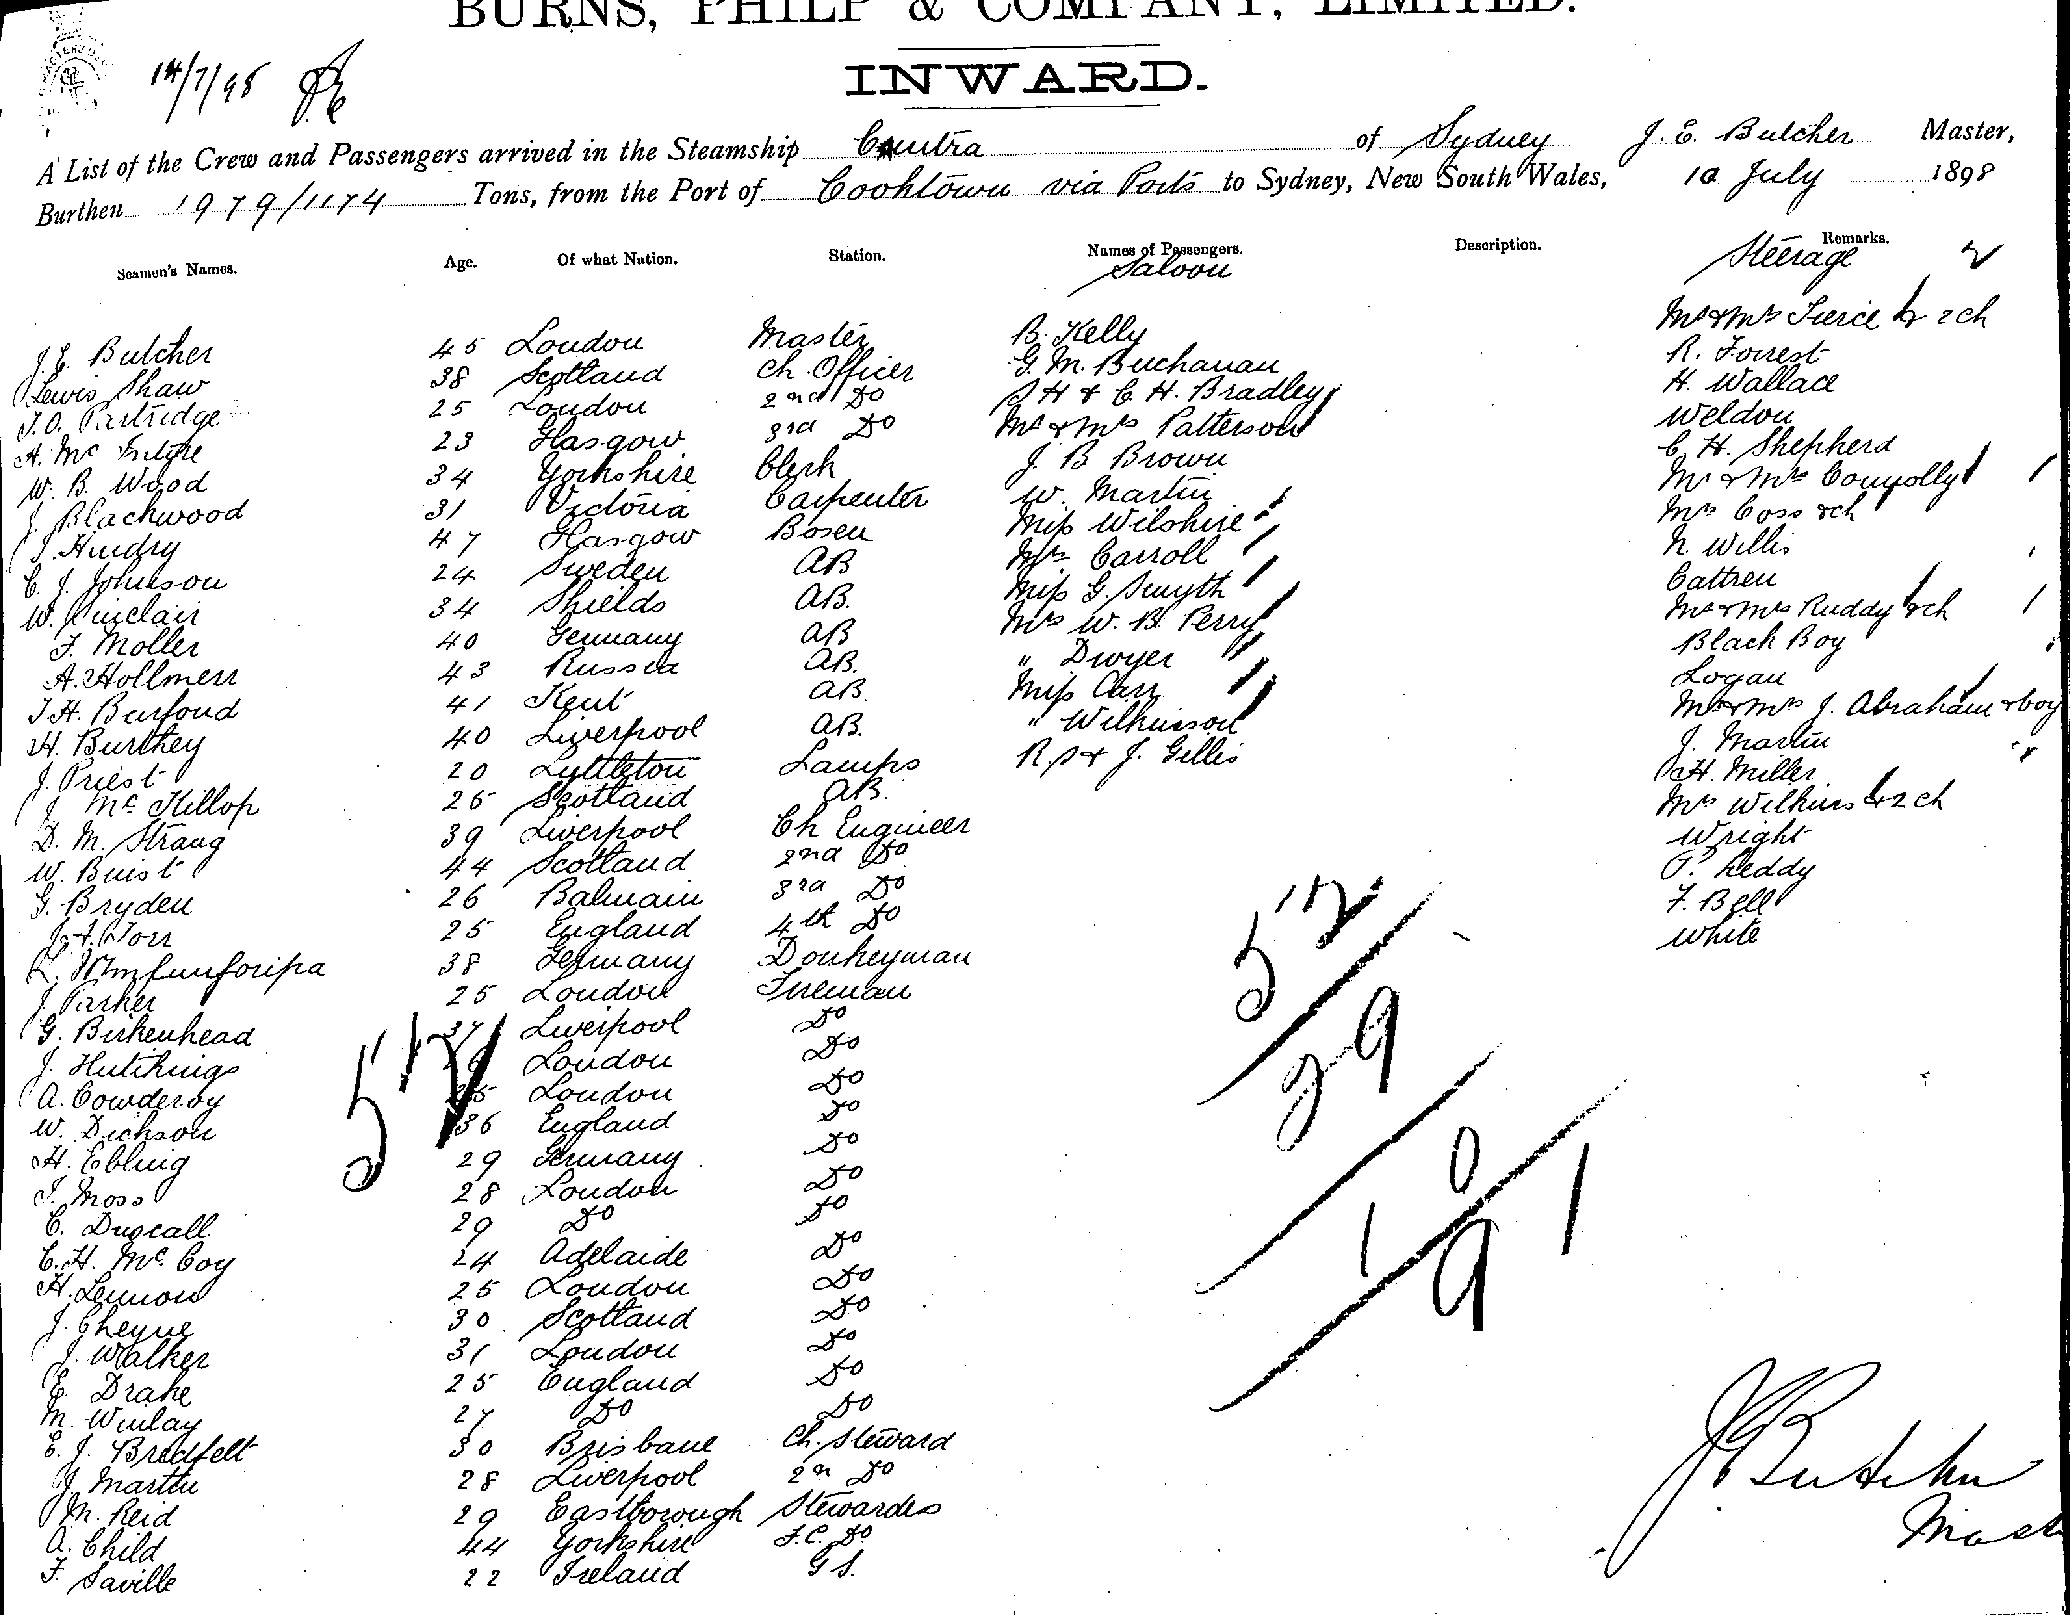 BURNS, PHILP & COMPANY, LIMITED.
14/7/98
INWARD.
A List of the Crew and Passengers arrived in the Steamship Cintra of Sydney J. E. Butcher Master,
Burthen 1979/1174 Tons, from the Port of Cooktown via Ports to Sydney, New South Wales, 10 July 1898
Seamen's Names. Age. Of what Nation. Station. Names of Passengers. Description. Remarks.
Saloon Steerage
J. E. Butcher 45 London Master
Lewis Shaw 38 Scotland Ch. Officer
T. O. Partridge 25 London 2nd Do
A. Mc Intyre 23 Glasgow 3rd Do
W. B. Wood 34 Yorkshire Clerk
J. Blackwood 31 Victoria Carpenter
J. Hendry 47 Glasgow Bosen
C. J. Johnson 24 Sweden AB
W. Sinclair 34 Shields AB.
F. Moller 40 Germany AB
A. Hollmen 43 Russia AB.
T. H. Burford 41 Kent AB.
H. Burthey 40 Liverpool AB.
J. Priest 20 Lyttleton Lamps
J. Mc Killop 26 Scotland AB.
D. M. Strang 39 Liverpool Ch Engineer
W. Buist 44 Scotland 2nd Do
G. Bryden 26 Balmain 3rd Do
J. A. Torr 25 England 4th Do
38 Germany Donkeyman
J. Parker 25 London Fireman
G. Birkenhead 37 Liverpool Do
J. Hutchings 26 London Do
A. Cowderoy 25 London Do
W. Dickson 36 England Do
H. Ebling 29 Germany Do
J. Moss 28 London Do
C. Driscall 29 Do Do
C. H. Mc Coy 24 Adelaide Do
H. Lennon 25 London Do
J. Cheyne 30 Scotland Do
J. Walker 31 London Do
E. Drake 25 England Do
M. Winlay 27 Do Do
E. J. Bredfelt 30 Brisbane Ch. Steward
J. Martin 28 Liverpool 2n Do
M. Reid 29 Eastborough Stewardes
A. Child 44 Yorkshire F.C. Do
F. Saville 22 Ireland G S.
B. Kelly
G. M. Buchanan
S H & C. H. Bradley
Mr & Mrs Patterson
J. B Brown
W. Martin
Miss Wilshire
Mrs Carroll
Miss G. Smyth
Mrs W. B. Perry
" Dwyer
Miss Carr
" Wilkinson
R. S & J. Gillis
Mr & Mrs Pierce & 2 ch
R. Forrest
H. Wallace
Weldon
C. H. Shepherd
Mr & Mrs Connolly
Mrs Coss & ch
N. Willis
Cattren
Mr & Mrs Ruddy & ch
Black Boy
Logan
Mr & Mrs J. Abraham & boy
J. Martin
H. Miller
Mrs Wilkins & 2 ch
Wright
P. Reddy
F. Bell
White
52
52
39
10
91
J E Butcher
Mast